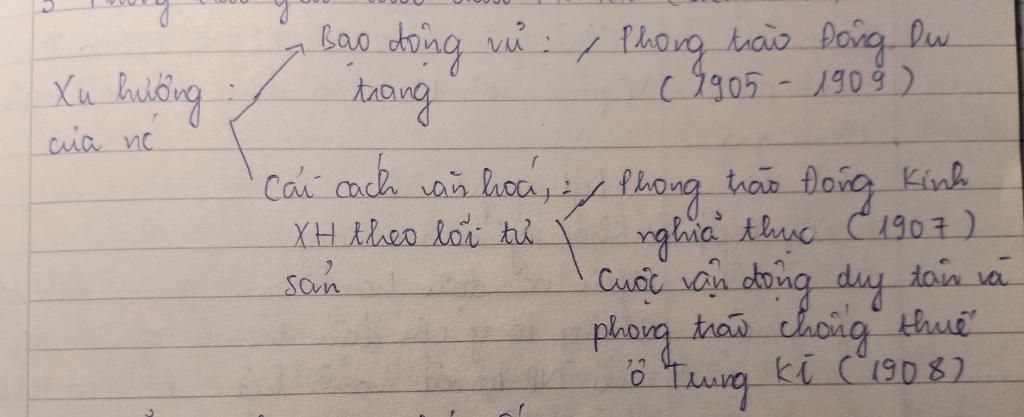 Bạo động vũ : / Phong trào Đông Du
Xu hướng : trang (1905 - 1909)
của nó
Cải cách văn hoá, : / Phong trào Đông Kinh
XH theo lối tư nghĩa thục (1907)
sản \ Cuộc vận động duy tân và
phong trào chống thuế
ở Trung Kì (1908)